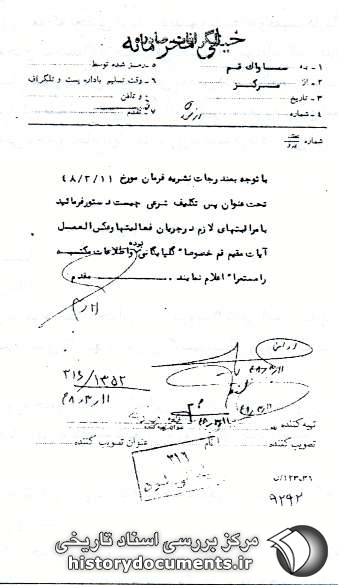 خیلی محرمانه
۱ - به ساواك قم
۵ - رمز شده توسط
۲ - از مرکز
۶ - وقت تسلیم باداره پست و تلگراف
۳ - تاریخ
و تلفن
۴ - شماره
۷ - تقدم
شماره
با توجه بمندرجات نشریه فرمان مورخ ۴۸/۲/۱۱
تحت عنوان پس تکلیف شرعی چیست دستور فرمائید
با مراقبتهای لازم در جریان فعالیتها و عکس العمل
آیات مقیم قم خصوصا" گلپایگانی بوده و اطلاعات مکتسبه
را مستمرا" اعلام نمایند ـــــــــ مقدم
۳۱۶/۱۳۵۲
۴۸/۳/۱۱
۴۸/۳/۱۱
تهیه کننده
تصویب کننده
عنوان تصویب کننده
۳۱۶
۱۲۳-۳۱/ن
۹۲۹۲
مرکز بررسی اسناد تاریخی
historydocuments.ir